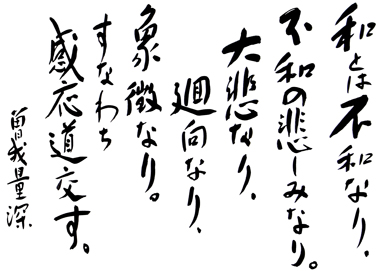 和とは不和なり、
不和の悲しみなり。
大悲なり、
廻向なり、
象徴なり。
すなわち
感応道交す。
曽我量深